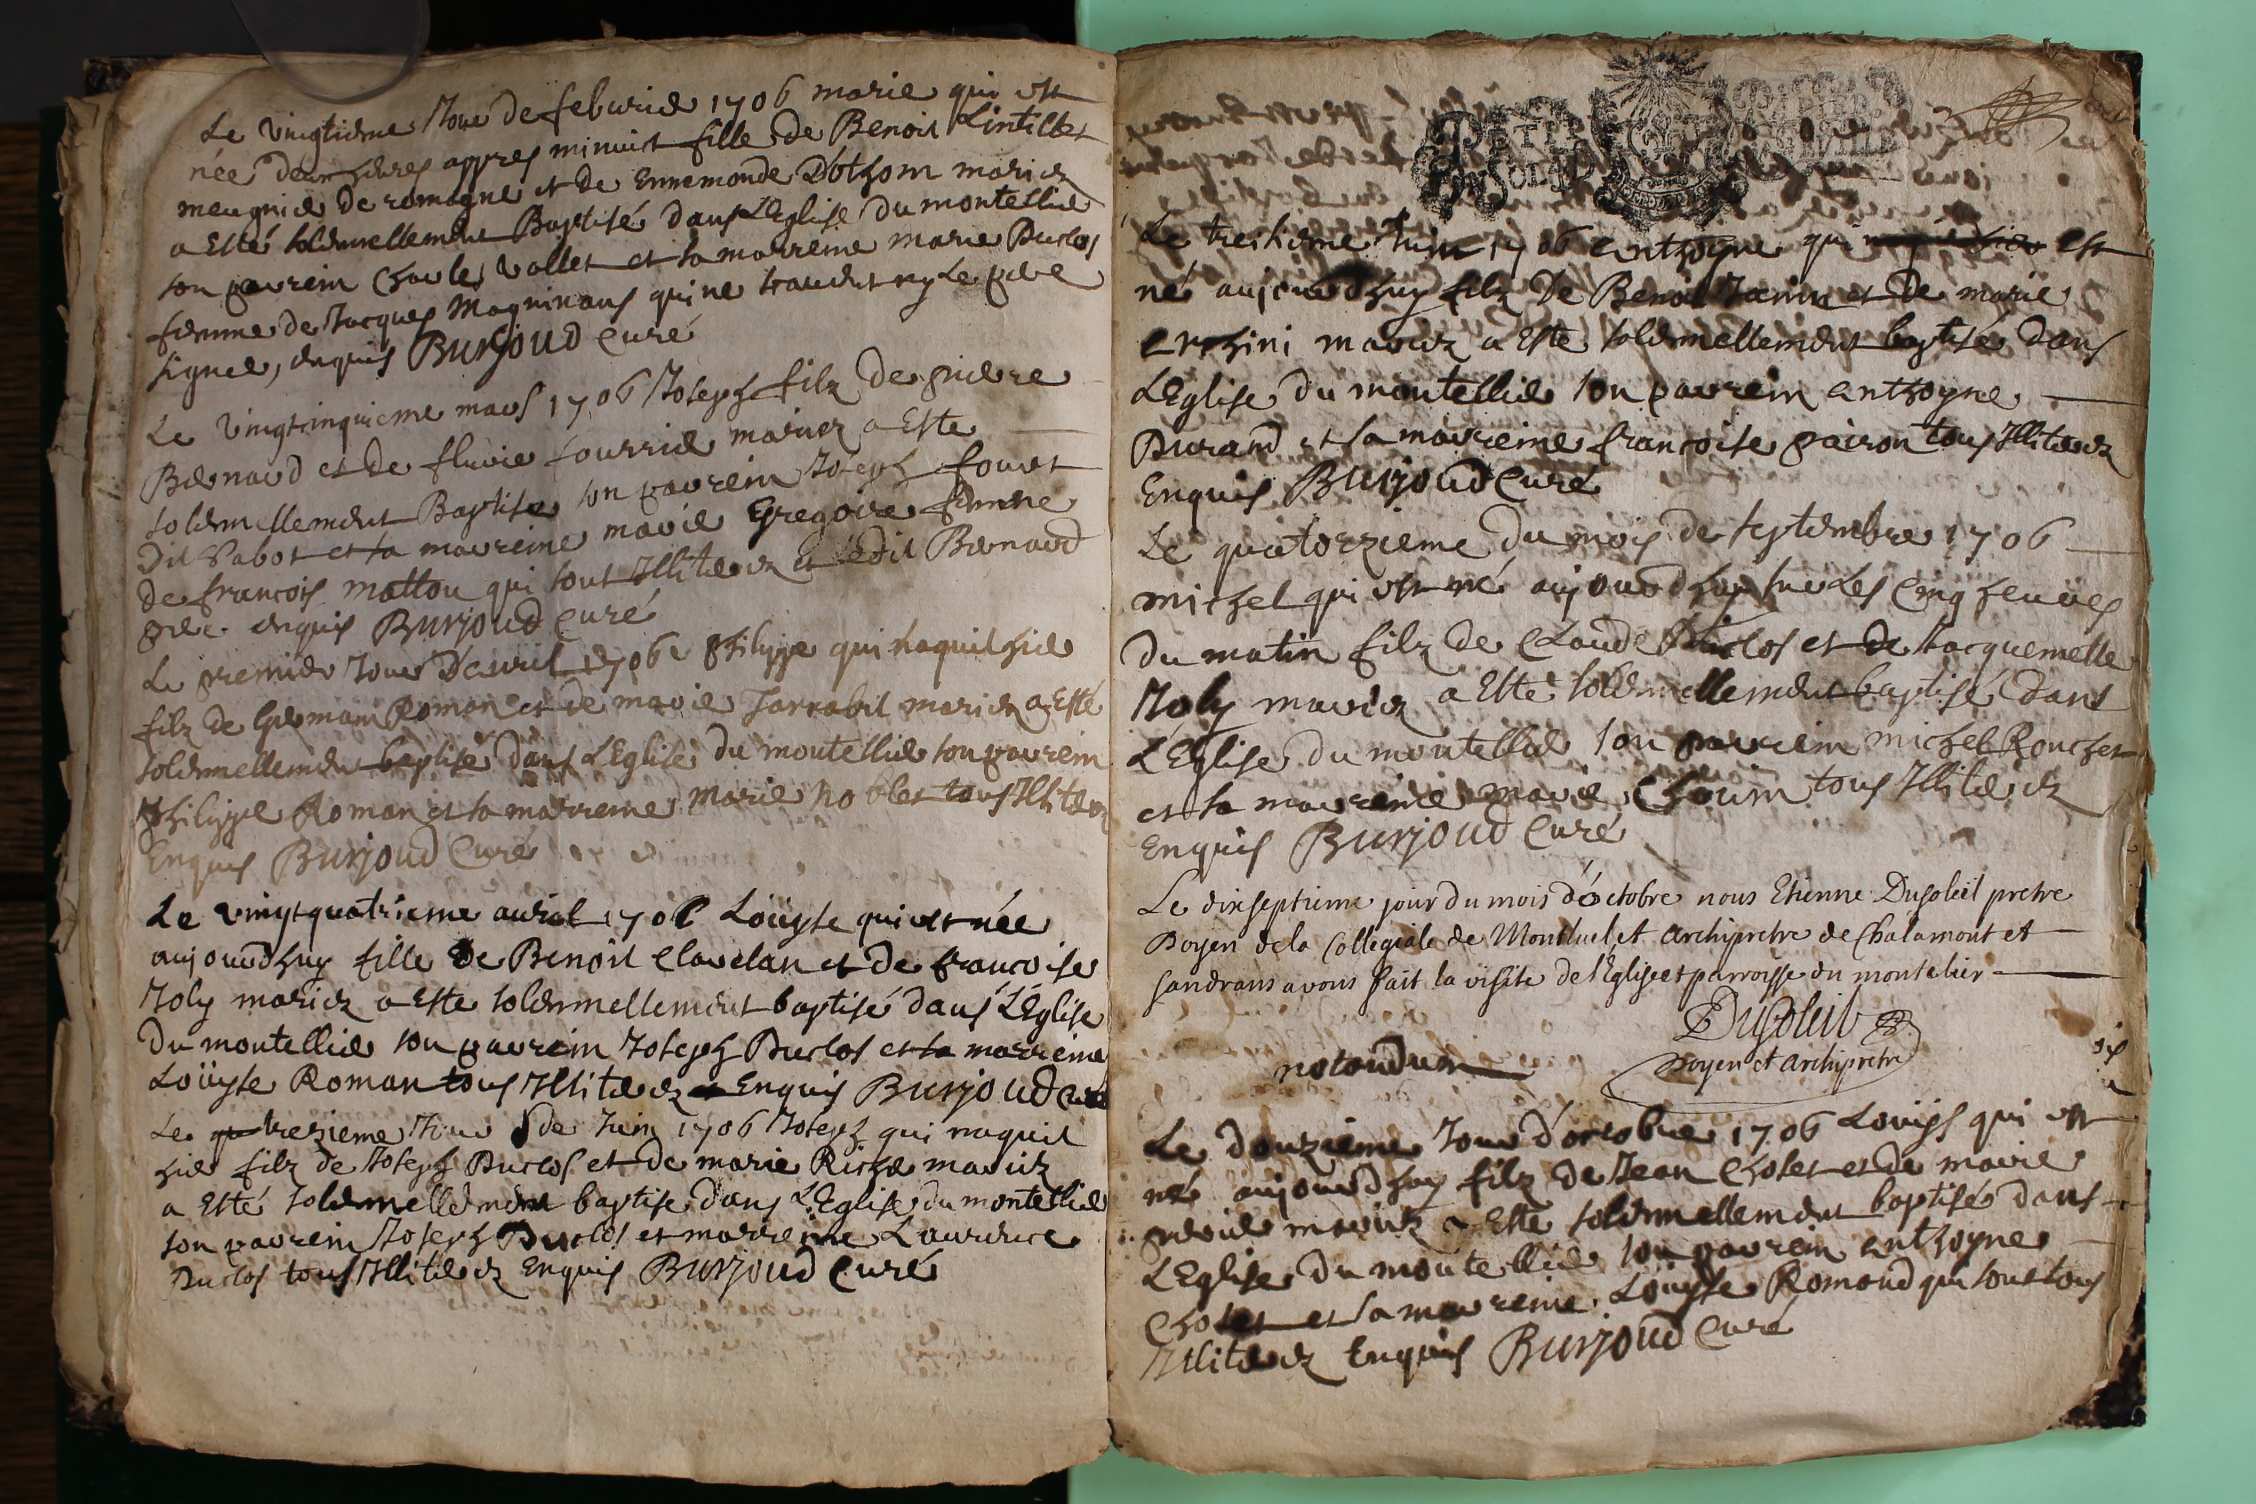 Le vingtieme Jour de feburier 1706 marie qui est
née deux heures appres minuict fille de Benoit Lintillet
meugnier de romagne et de Ennemonde Dothom mariez
a Esté solemnellement Baptisé dans L'Eglise du montellier
son parrein Charles Vallet et sa marreine marie Duclos
femme de Jacques Magninans qui ne scavent ny le pere
signer, enquis Burjoud Curé
Le Vingtcinquieme mars 1706 Joseph filz de pierre
Bernard et de fluvie fourrier mariez a Esté
solemnellement Baptise son parrein Joseph fouret
Dit Pabot et sa marreine marie Gregoire femme
de francois mattou qui sont Illiterez et ledit Bernard
pere enquis Burjoud Curé
Le premier Jour D'avril 1706 philippe qui naquit hier
filz de Germain Roman et de marie Jarrabit mariez a Esté
solemnellement baptisé dans L'Eglise du montellier son parrein
philippe Roman et sa marreine Marie noblet tous Illiterez
Enquis Burjoud Curé
Le vingtquatrieme auril 1706 Loüyse qui est née
aujourdhuy fille de Benoit Clavelan et de francoise
Joly mariez a Esté solemnellement baptisé dans L'Eglise
du montellier son parrein Joseph Duclos et sa marreine
Loüyse Roman tous Illiterez Enquis Burjoud Curé
Le trezieme Jour de Juin 1706 Joseph qui naquit
hier filz de Joseph Duclos et de marie Richer mariez
a Esté solemnellement baptise dans L'Eglise du montellier
son parrein Joseph Duclos et marreine Laurence
Duclos tous Illiterez Enquis Burjoud Curé
Le treizieme Juin 1706 anthoyne qui est
né aujourdhuy filz de Benoit Janin et de marie
mariez a Esté solemnellement baptisé dans
L'Eglise du montellier son parrein anthoyne
Durand et sa marreine francoise pairon tous Illiterez
Enquis Burjoud Curé
Le quatorzieme du mois de septembre 1706
michel qui est né aujourdhuy sur les cinq heures
du matin filz de Claude Duclos et de Jacquemette
Joly mariez a Esté solemnellement baptisé dans
L'Eglise du montellier son parrein michel Rouchet
et sa marreine marie Choim tous Illiterez
Enquis Burjoud Curé
Le dixseptieme jour du mois d'octobre nous Etienne Dusoleil pretre
Doyen de la Collegiale de Montluel et archipretre de Chalamont et
sandrans avons fait la visite de l'Eglise et parroisse du montelier
Dusoleil
Doyen et archipretre
notandum
Le douzieme Jour d'octobre 1706 Louys qui est
né aujourdhuy filz de Jean Cholet et de marie
mariez a Esté solemnellement baptisé dans
L'Eglise du montellier son parrein anthoyne
Cholet et sa marreine Louyse Romand qui sont tous
Illiterez Enquis Burjoud Curé